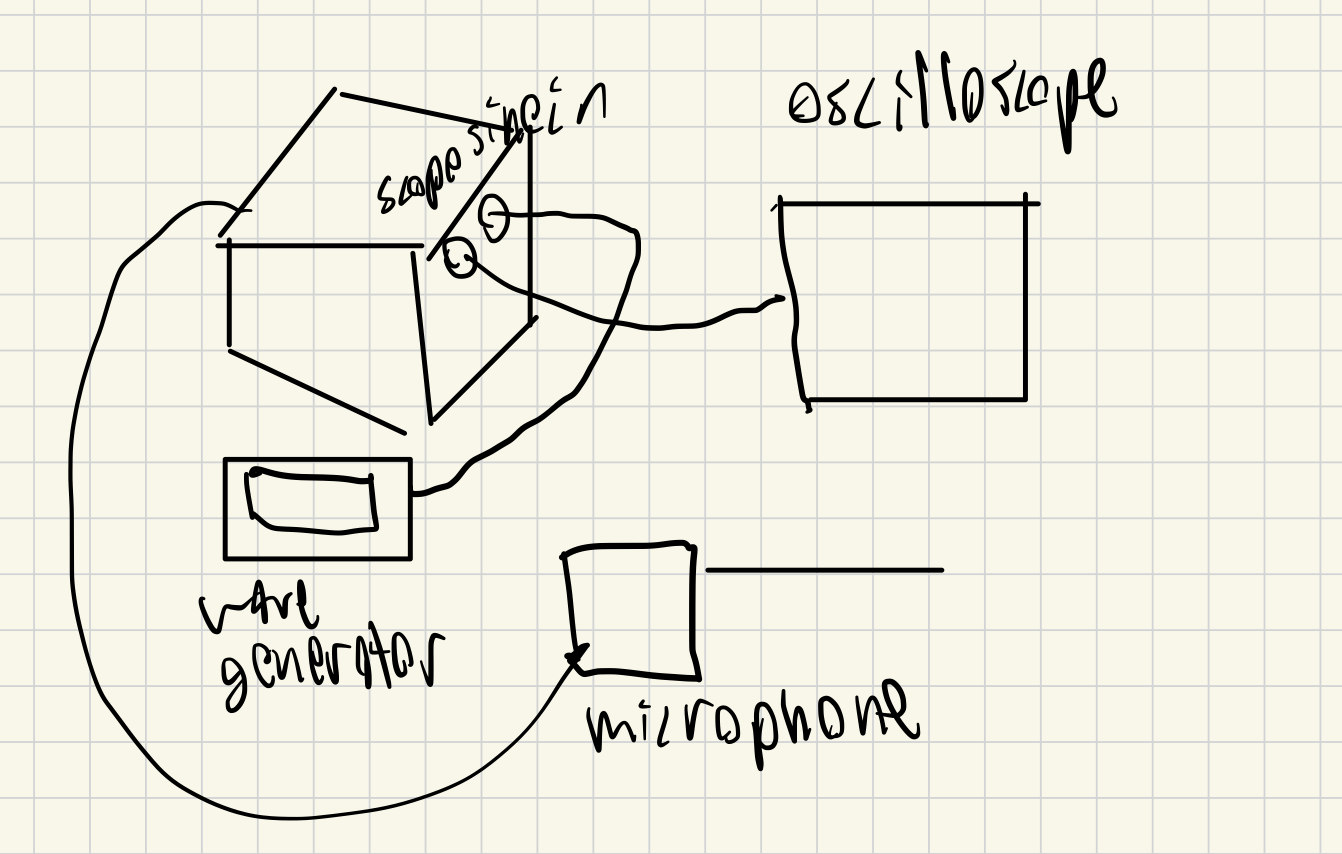 scope
sine in
oscilloscope
wave
generator
microphone